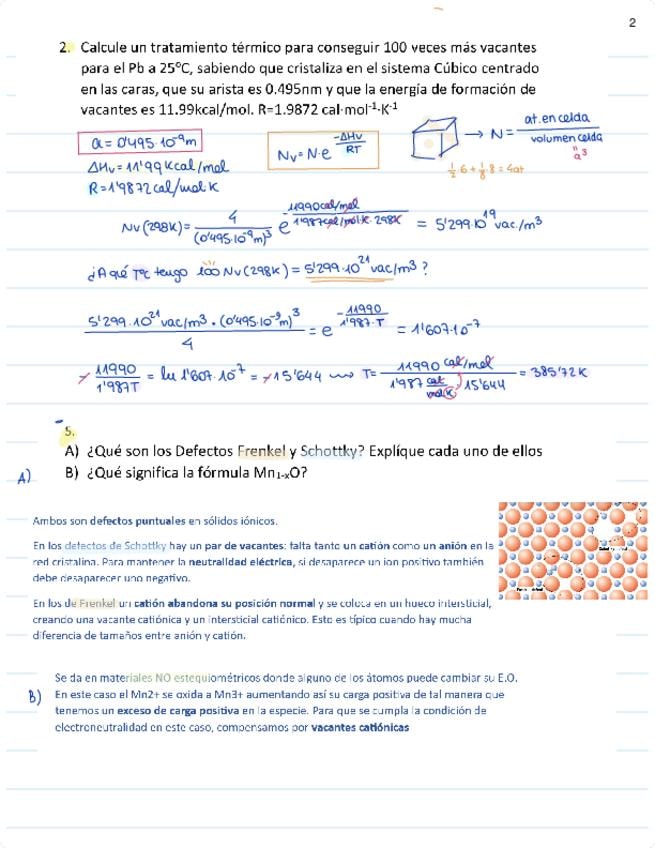 2
2. Calcule un tratamiento térmico para conseguir 100 veces más vacantes
para el Pb a 25ºC, sabiendo que cristaliza en el sistema Cúbico centrado
en las caras, que su arista es 0.495nm y que la energía de formación de
vacantes es 11.99kcal/mol. R=1.9872 cal·mol⁻¹·K⁻¹
a = 0'495·10⁻⁹m
ΔHv = 11'99 Kcal/mol
R = 1'9872 cal/mol K
Nv = N·e^(-ΔHv/RT)
→ N = at. en celda / volumen celda
a³
1/2·6 + 1/8·8 = 4at
Nv(298K) = 4/(0'495·10⁻⁹m)³ e^(-11990cal/mol / 1'987cal/mol·K·298K) = 5'299·10¹⁹ vac./m³
¿A qué Tª tengo 100 Nv(298K) = 5'299·10²¹ vac/m³?
5'299·10²¹ vac/m³ · (0'495·10⁻⁹m)³ / 4 = e^(-11990/1'987·T) = 1'607·10⁻⁷
-11990/1'987T = ln 1'607·10⁻⁷ = -15'644 → T = 11990 cal/mol / 1'987 cal/mol K · 15'644 = 385'72 K
5.
A) ¿Qué son los Defectos Frenkel y Schottky? Explíque cada uno de ellos
B) ¿Qué significa la fórmula Mn₁₋ₓO?
A)
Ambos son defectos puntuales en sólidos iónicos.
En los defectos de Schottky hay un par de vacantes: falta tanto un catión como un anión en la
red cristalina. Para mantener la neutralidad eléctrica, si desaparece un ion positivo también
debe desaparecer uno negativo.
En los de Frenkel un catión abandona su posición normal y se coloca en un hueco intersticial,
creando una vacante catiónica y un intersticial catiónico. Esto es típico cuando hay mucha
diferencia de tamaños entre anión y catión.
B)
Se da en materiales NO estequiométricos donde alguno de los átomos puede cambiar su E.O.
En este caso el Mn2+ se oxida a Mn3+ aumentando así su carga positiva de tal manera que
tenemos un exceso de carga positiva en la especie. Para que se cumpla la condición de
electroneutralidad en este caso, compensamos por vacantes catiónicas